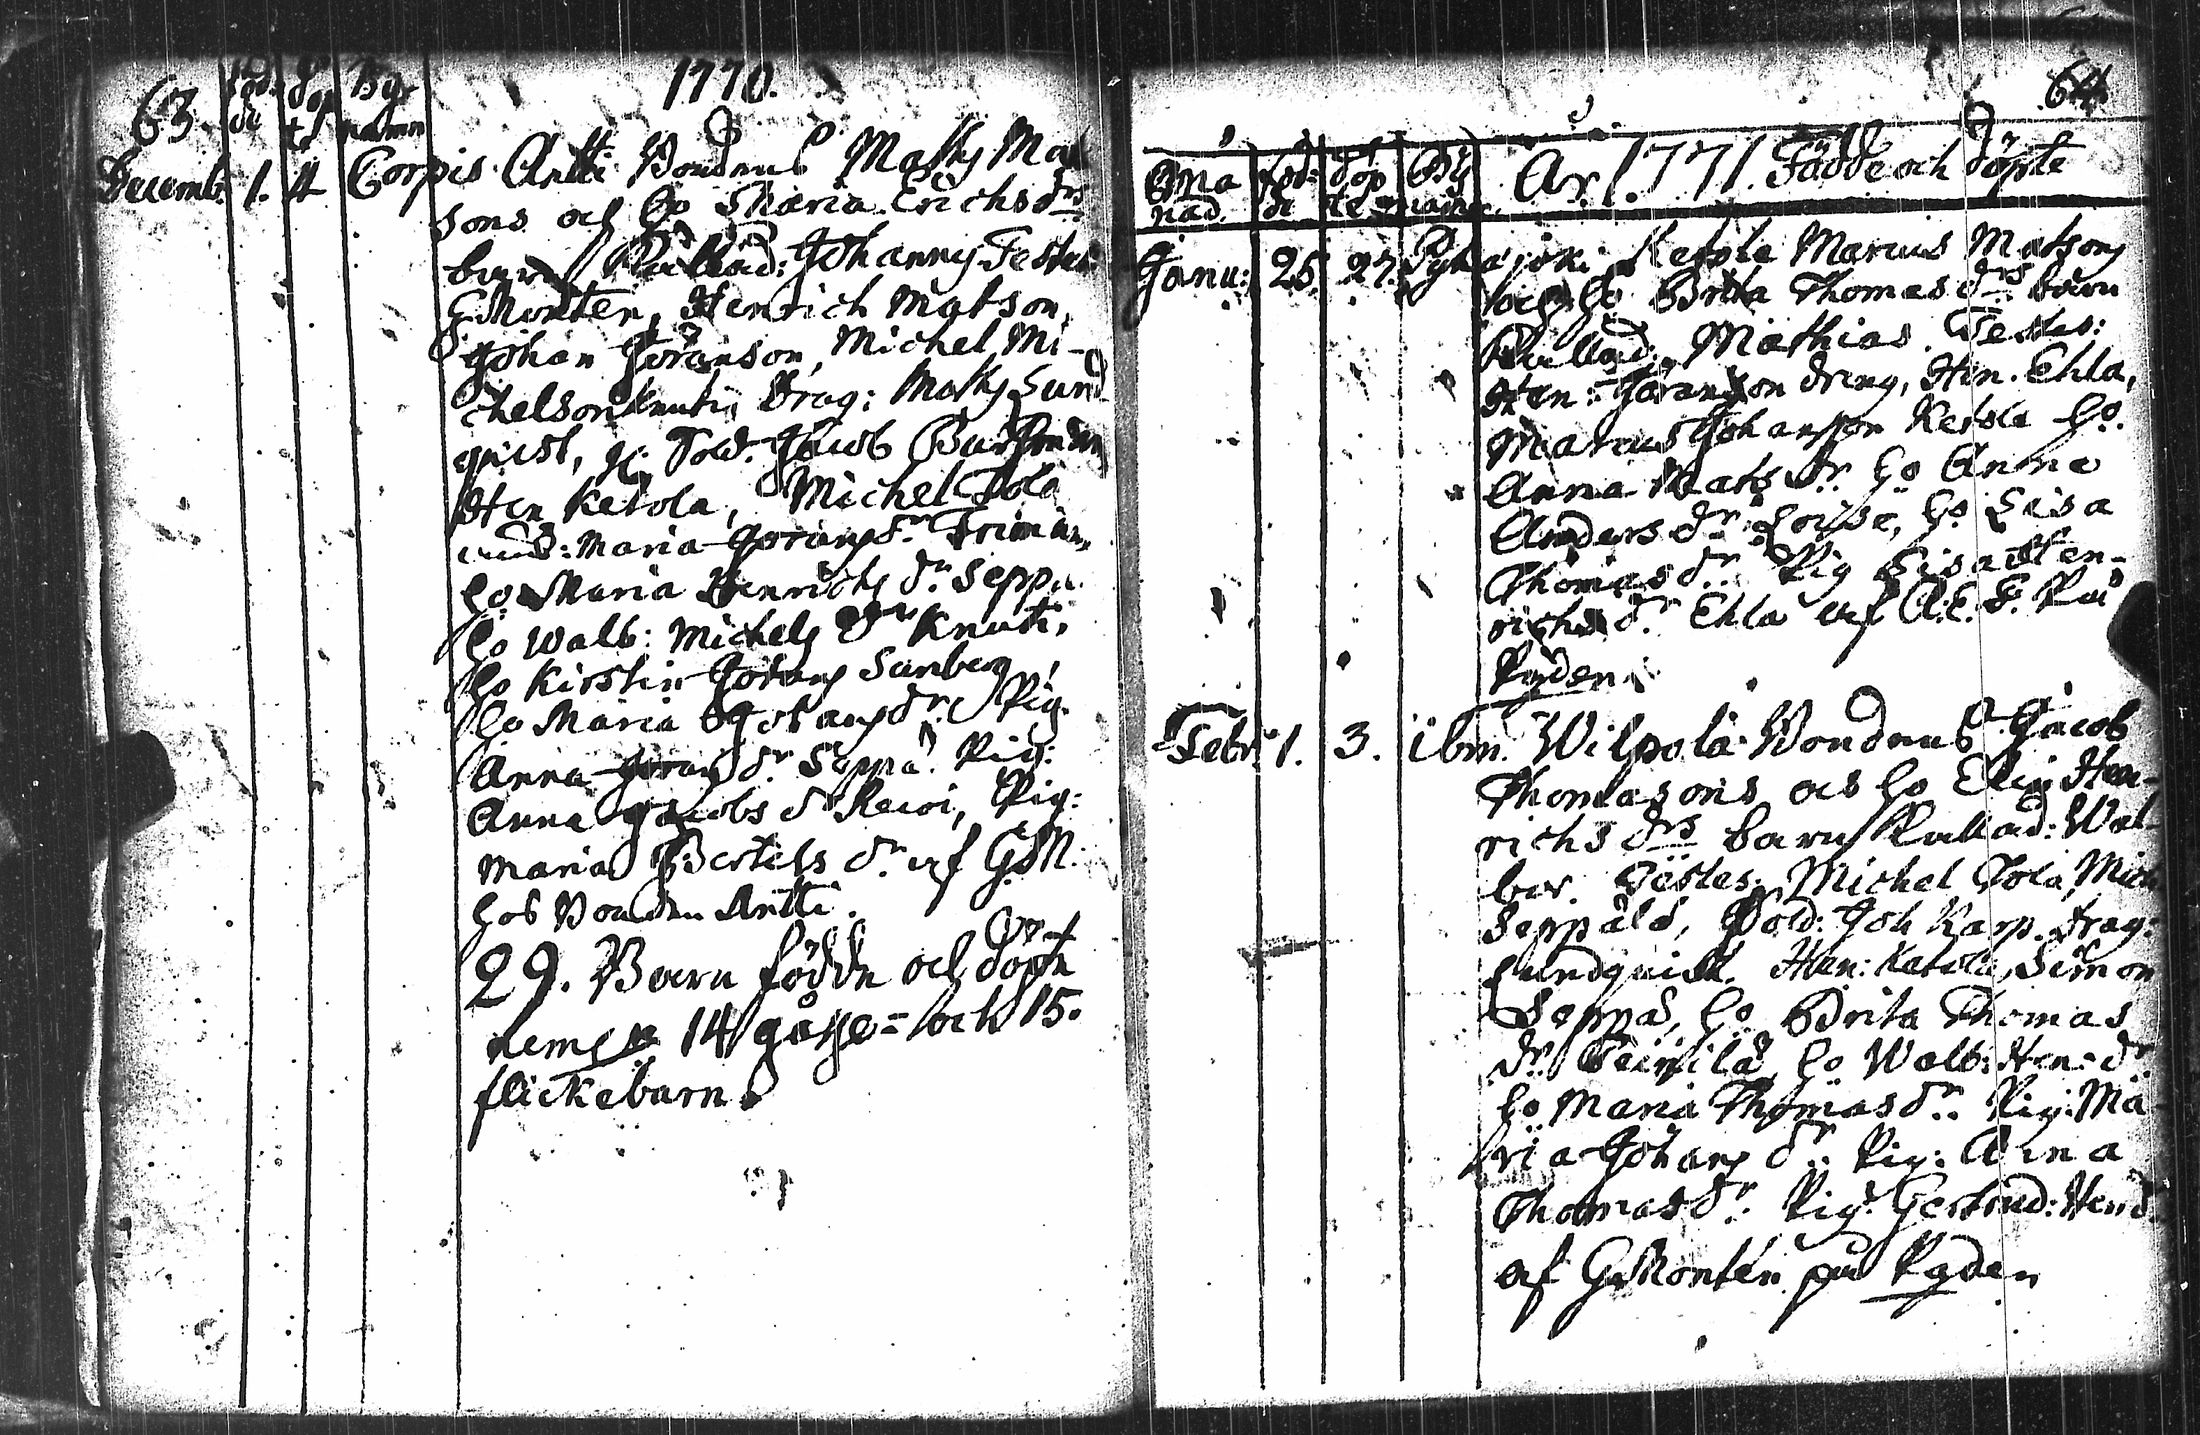 63
1770.
föd
de
döp
te
By
namn
Decemb: 1. 4. Corpis Antti Bondens Mathz Mat
sons och ho Maria Erichs drs
barn Kallad: Johannes. Testes
G Montén, Henrich Matson,
Johan Göranson, Michel Mi-
chelson Knuti, Drag: Mathz Sund
quist, Sold. Jacob
Hen Ketola, Michel Tola
Maria Görans dr
ho Maria Henrichs dr Seppä
ho Walb: Michels dr Knuti,
ho Kirstin Görans Sunberg,
ho Maria Johans dr Pig.
Anna Görans dr Seppä. Pig:
Anna Jacobs dr Pig:
Maria Bertels dr af G M.
hos Bonden Antti.
29. Barn födde och döpte
nemn 14 gåsse= och 15.
flickebarn.
64
Måna
nad
föd:
de
döp
te
By
namn
År 1771. Födde och döpte
Janu: 25. 27. Pyhäjoki Ketola Marcus Matsons
och ho Brita Thomas drs barn
Kallad: Mathias. Testes:
Hen: Göranson dreng, Hen. Ehla,
Marcus Johanson Ketola ho.
Anna Mats dr. ho Anna
Anders dr ho Lisa
Thomas dr. Pig Lisa Hen-
richs dr. Ehla af
Pyden.
Febr: 1. 3. ibm. Wilpola Bondens Jacob
Thomasons och ho Elin Hen-
richs drs barn Kallad: Wal-
bor. Testes: Michel Tola, Mich
Seppälä, Sold: Joh Karp. drag:
Sundquist. Hen: Ketola, Simon
Seppä, ho Brita Thomas
dr. ho Walb: Hen: dr
ho Maria Thomas dr. Pig: Ma
ria Johans dr. Pig: Anna
Thomas dr. Pig. Gertrud: Hend
af G Montén på Pyden